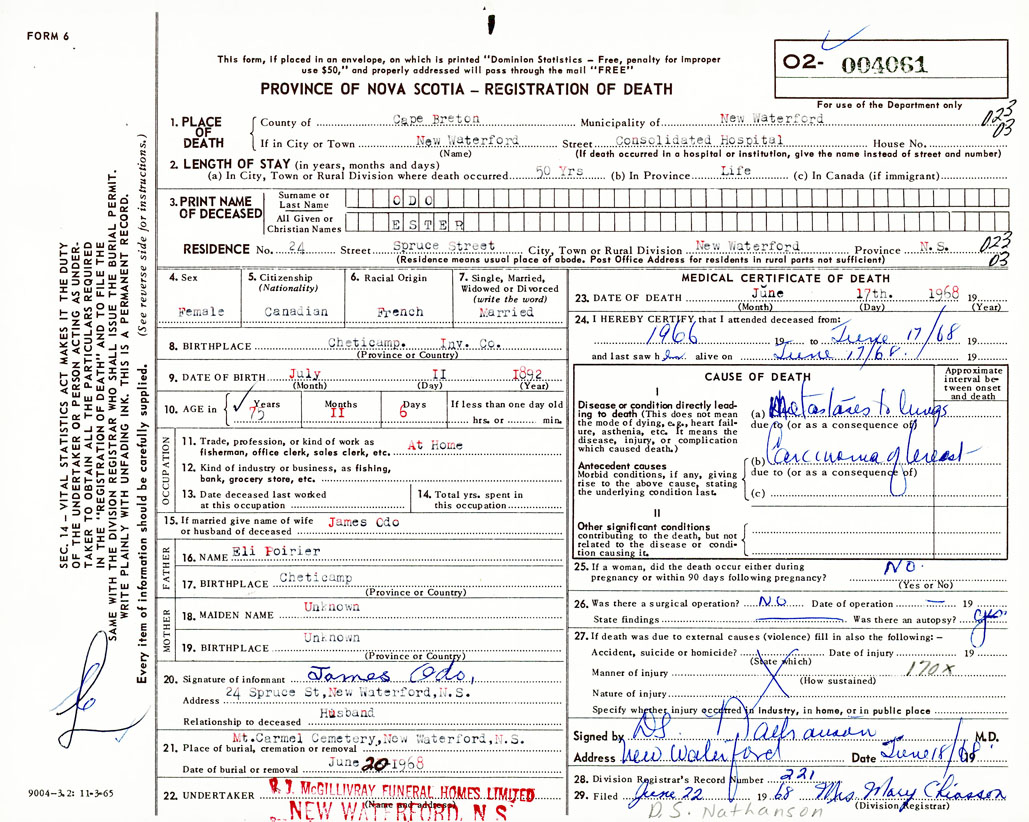 FORM 6
This form, if placed in an envelope, on which is printed "Dominion Statistics – Free, penalty for improper
use $50," and properly addressed will pass through the mail "FREE"
PROVINCE OF NOVA SCOTIA – REGISTRATION OF DEATH
O2- 004061
For use of the Department only
SEC. 14 – VITAL STATISTICS ACT MAKES IT THE DUTY
OF THE UNDERTAKER OR PERSON ACTING AS UNDER-
TAKER TO OBTAIN ALL THE PARTICULARS REQUIRED
IN THE "REGISTRATION OF DEATH" AND TO FILE THE
SAME WITH THE DIVISION REGISTRAR WHO SHALL ISSUE THE BURIAL PERMIT.
WRITE PLAINLY WITH UNFADING INK. THIS IS A PERMANENT RECORD.
Every item of information should be carefully supplied. (See reverse side for instructions.)
1. PLACE OF DEATH
County of Cape Breton Municipality of New Waterford 023
03
If in City or Town New Waterford Street Consolidated Hospital House No.
(Name) (If death occurred in a hospital or institution, give the name instead of street and number)
2. LENGTH OF STAY (in years, months and days)
(a) In City, Town or Rural Division where death occurred 50 Yrs (b) In Province Life (c) In Canada (if immigrant)
3. PRINT NAME OF DECEASED
Surname or Last Name ODO
All Given or Christian Names ESTER
RESIDENCE No. 24 Street Spruce Street City, Town or Rural Division New Waterford Province N.S. 023
03
(Residence means usual place of abode. Post Office Address for residents in rural parts not sufficient)
4. Sex
Female
5. Citizenship
(Nationality)
Canadian
6. Racial Origin
French
7. Single, Married,
Widowed or Divorced
(write the word)
Married
8. BIRTHPLACE Cheticamp. Inv. Co.
(Province or Country)
9. DATE OF BIRTH July II 1892
(Month) (Day) (Year)
10. AGE in Years 75 Months II Days 6 If less than one day old
hrs. or min.
OCCUPATION
11. Trade, profession, or kind of work as
fisherman, office clerk, sales clerk, etc. At Home
12. Kind of industry or business, as fishing,
bank, grocery store, etc.
13. Date deceased last worked
at this occupation
14. Total yrs. spent in
this occupation
15. If married give name of wife
or husband of deceased James Odo
FATHER
16. NAME Eli Poirier
17. BIRTHPLACE Cheticamp
(Province or Country)
MOTHER
18. MAIDEN NAME Unknown
19. BIRTHPLACE Unknown
(Province or Country)
20. Signature of informant James Odo,
Address 24 Spruce St, New Waterford, N.S.
Relationship to deceased Husband
Mt. Carmel Cemetery, New Waterford, N.S.
21. Place of burial, cremation or removal
Date of burial or removal June 20 1968
22. UNDERTAKER McGILLIVRAY FUNERAL HOMES LIMITED
(Name and address)
NEW WATERFORD, N.S.
9004-3.2: 11-3-65
MEDICAL CERTIFICATE OF DEATH
23. DATE OF DEATH June 17th. 1968 19
(Month) (Day) (Year)
24. I HEREBY CERTIFY, that I attended deceased from:
1966 19 to June 17/68 19
and last saw her alive on June 17/68. 19
CAUSE OF DEATH
Approximate
interval be-
tween onset
and death
I
Disease or condition directly lead-
ing to death (This does not mean
the mode of dying, e.g., heart fail-
ure, asthenia, etc. It means the
disease, injury, or complication
which caused death.)
(a) Metastases to lungs
due to (or as a consequence of)
Antecedent causes
Morbid conditions, if any, giving
rise to the above cause, stating
the underlying condition last.
(b) Carcinoma of breast
due to (or as a consequence of)
(c)
II
Other significant conditions
contributing to the death, but not
related to the disease or condi-
tion causing it.
25. If a woman, did the death occur either during
pregnancy or within 90 days following pregnancy? NO.
(Yes or No)
26. Was there a surgical operation? NO Date of operation — 19
State findings Was there an autopsy? yes
27. If death was due to external causes (violence) fill in also the following: –
Accident, suicide or homicide? Date of injury 19
(State which)
Manner of injury 170X
(How sustained)
Nature of injury
Specify whether injury occurred in industry, in home, or in public place
Signed by DS Nathanson M.D.
Address New Waterford Date June 18/68 19
28. Division Registrar's Record Number 221
29. Filed June 22 1968 Mrs. Mary Chiasson
(Division Registrar)
D.S. Nathanson